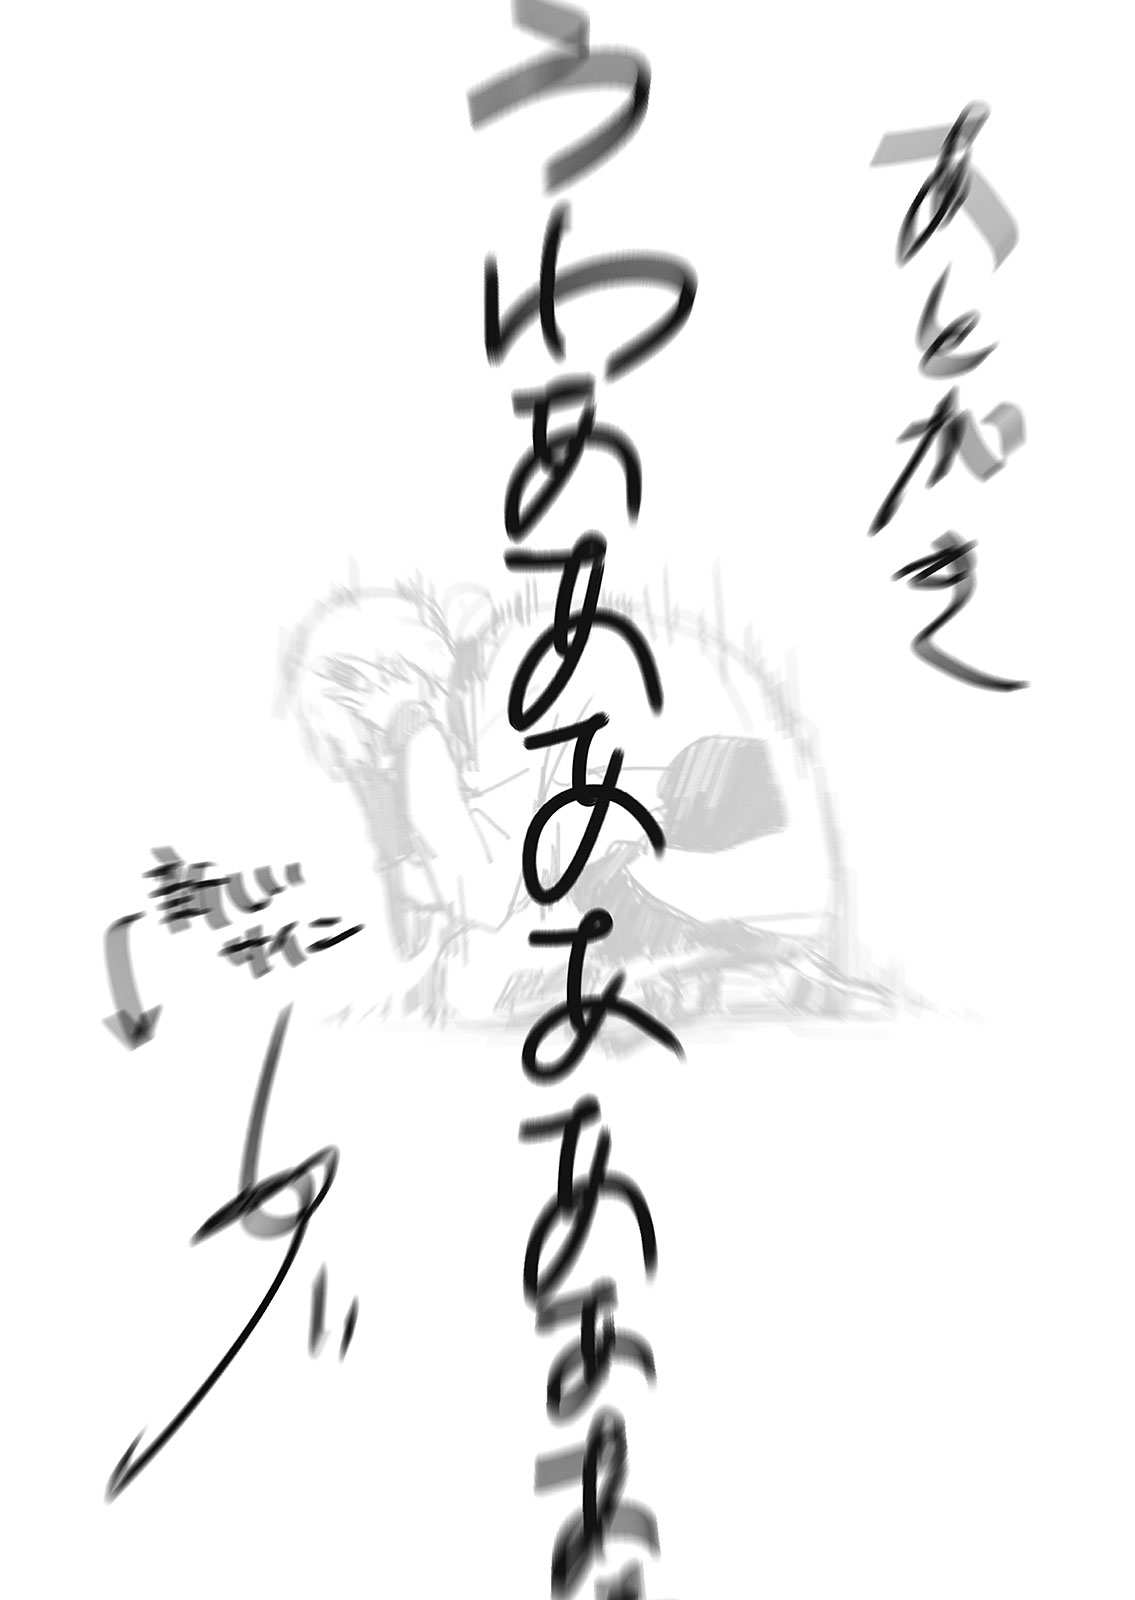 あとがき
うわあああああああ
新しい
サイン